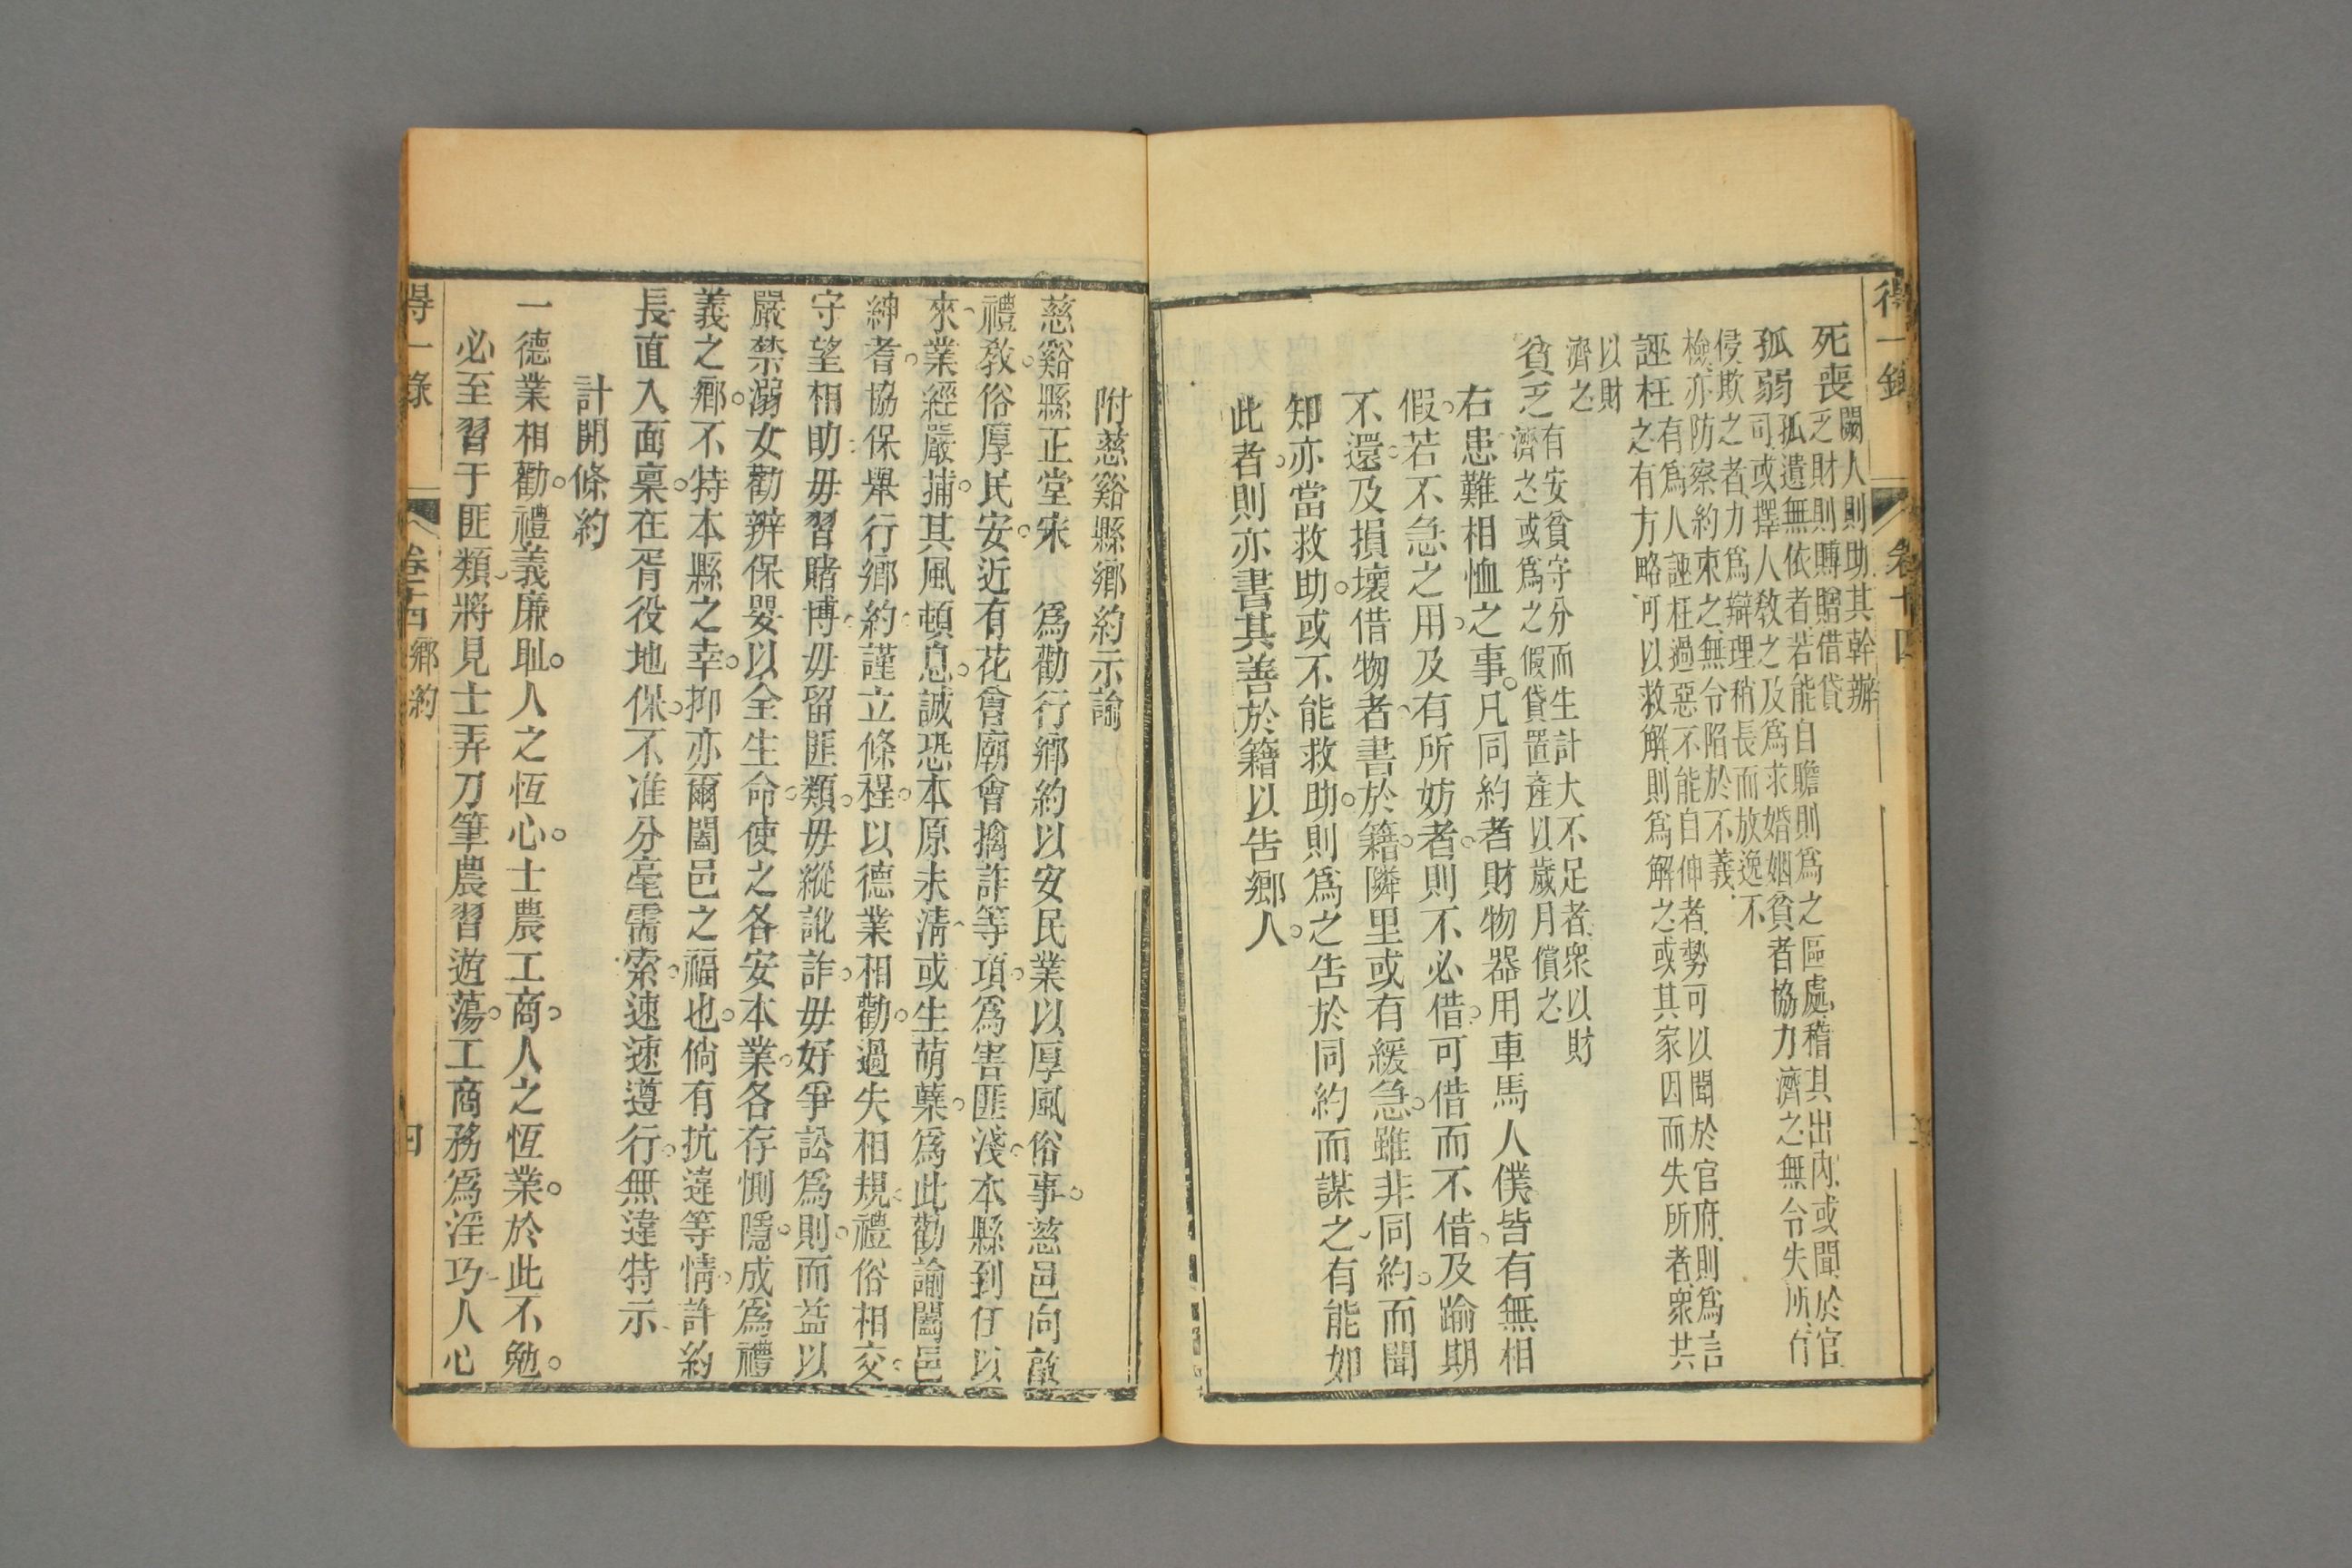 得一錄
卷十四
死喪
闕人則助其幹辦
乏財則賻贈借貸
孤弱
孤遺無依者若能自贍則爲之區處稽其出內或聞於官
司或擇人教之及爲求婚姻貧者協力濟之無令失所有
侵欺之者力爲辯理稍長而放逸不
檢亦防察約束之無令陷於不義
誣枉
有爲人誣枉過惡不能自伸者勢可以聞於官府則爲言
之有方略可以救解則爲解之或其家因而失所者衆共
以財
濟之
貧乏
有安貧守分而生計大不足者衆以財
濟之或爲之假貸置產以歲月償之
右患難相恤之事凡同約者財物器用車馬人僕皆有無相
假若不急之用及有所妨者則不必借可借而不借及踰期
不還及損壞借物者書於籍隣里或有緩急雖非同約而聞
知亦當救助或不能救助則爲之告於同約而謀之有能如
此者則亦書其善於籍以告鄉人
附慈谿縣鄉約示諭
慈谿縣正堂宋　爲勸行鄉約以安民業以厚風俗事慈邑向敦
禮教俗厚民安近有花會廟會擒詐等項爲害匪淺本縣到任以
來業經嚴捕其風頓息誠恐本原未清或生萌蘖爲此勸諭闔邑
紳耆協保舉行鄉約謹立條程以德業相勸過失相規禮俗相交
守望相助毋習賭博毋留匪類毋縱訛詐毋好爭訟爲則而益以
嚴禁溺女勸辦保嬰以全生命使之各安本業各存惻隱成爲禮
義之鄉不特本縣之幸抑亦爾闔邑之福也倘有抗違等情許約
長直入面稟在胥役地保不准分毫需索速速遵行無違特示
計開條約
一德業相勸禮義廉耻人之恆心士農工商人之恆業於此不勉
必至習于匪類將見士弄刀筆農習遊蕩工商務爲淫巧人心
得一錄
卷十四鄉約
四